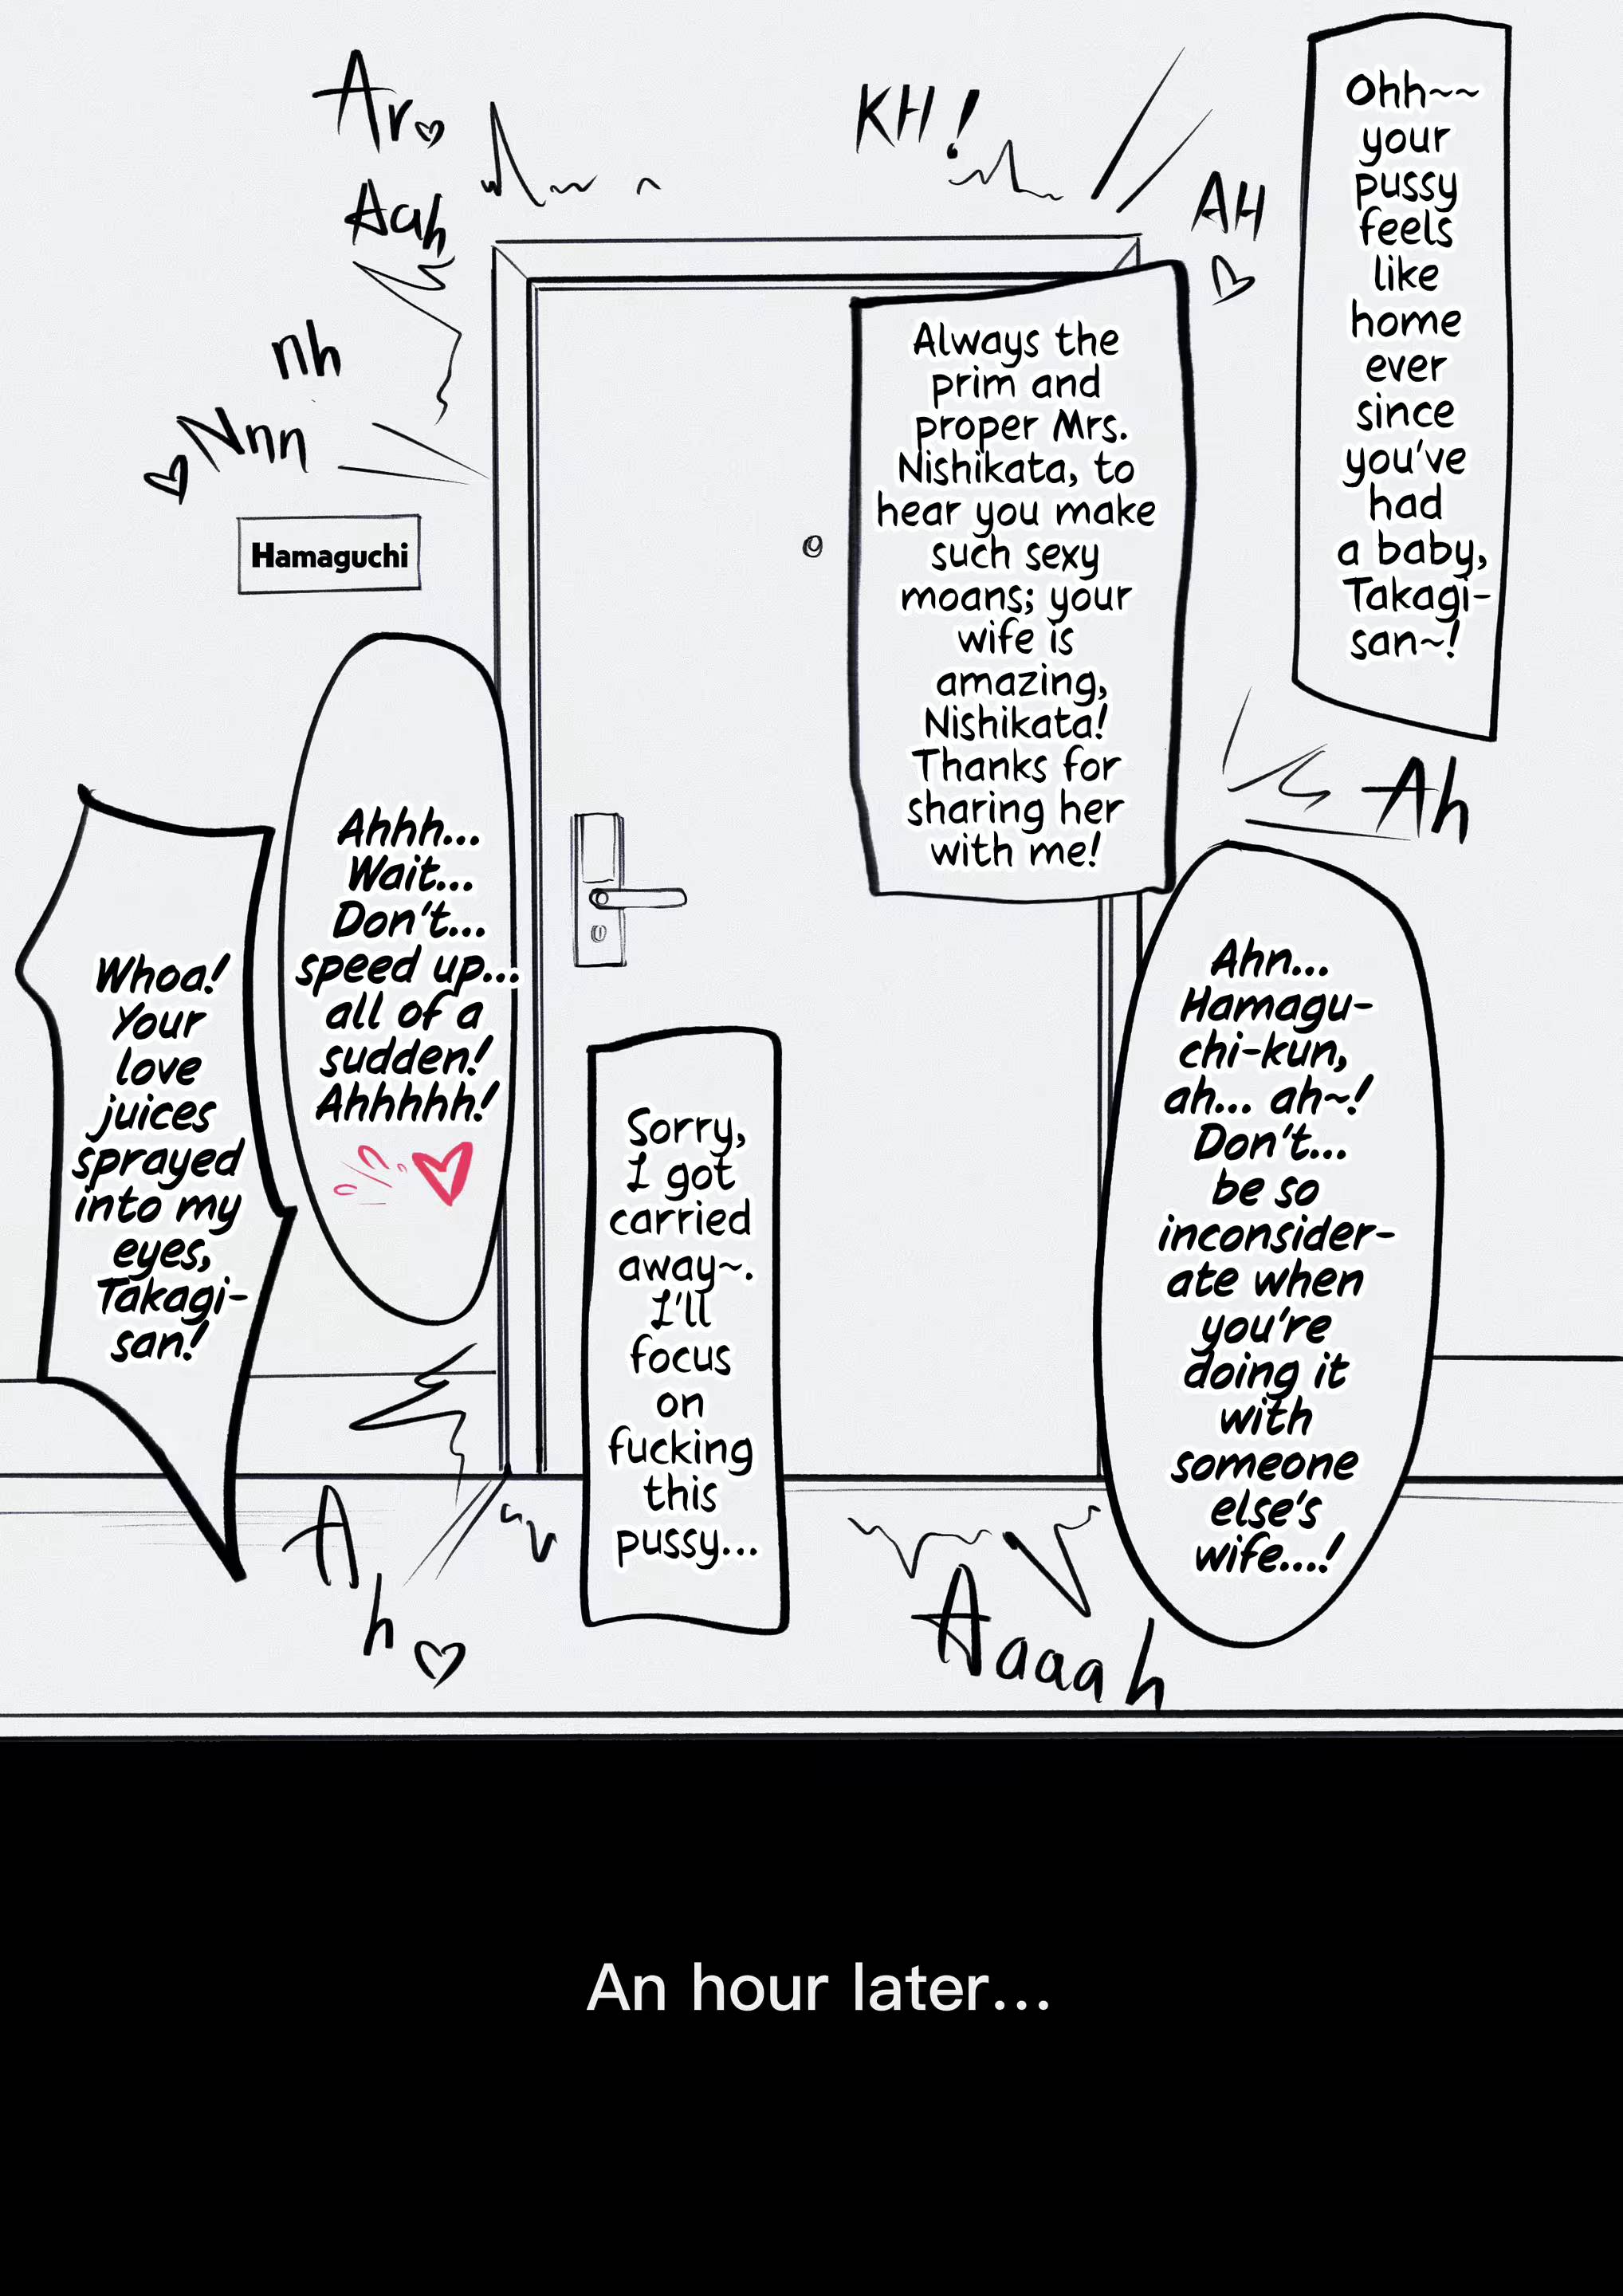 Ohh~~
your
pussy
feels
like
home
ever
since
you've
had
a baby,
Takagi-
san~!
Always the
prim and
proper Mrs.
Nishikata, to
hear you make
such sexy
moans; your
wife is
amazing,
Nishikata!
Thanks for
sharing her
with me!
KH!
AH
Ar
Aah
nh
Nnn
Hamaguchi
Ah
Ahn...
Hamagu-
chi-kun,
ah... ah~!
Don't...
be so
inconsider-
ate when
you're
doing it
with
someone
else's
wife...!
Sorry,
I got
carried
away~.
I'll
focus
on
fucking
this
pussy...
Ahhh...
Wait...
Don't...
speed up...
all of a
sudden!
Ahhhhh!
Whoa!
Your
love
juices
sprayed
into my
eyes,
Takagi-
san!
Aaaah
Ah
An hour later...